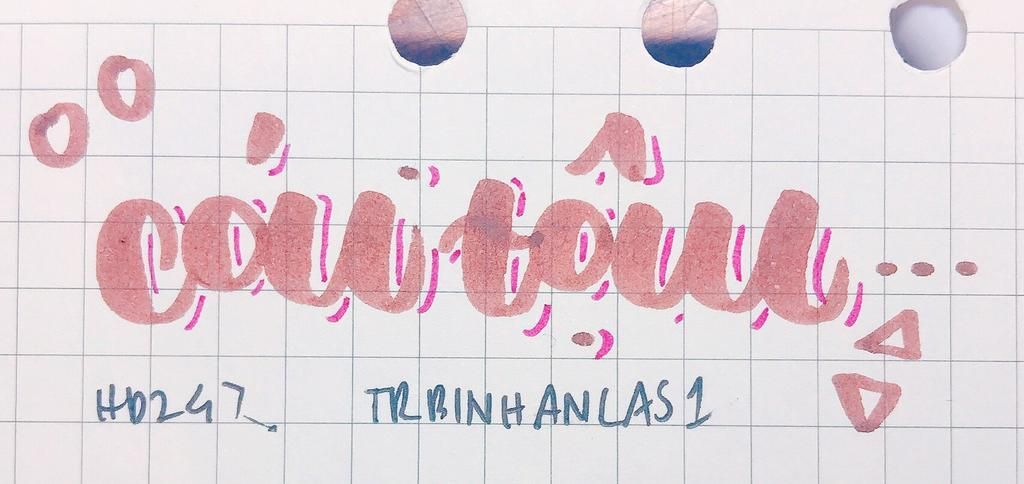 cóu tộu...
HD247 TRBINHANCAS1